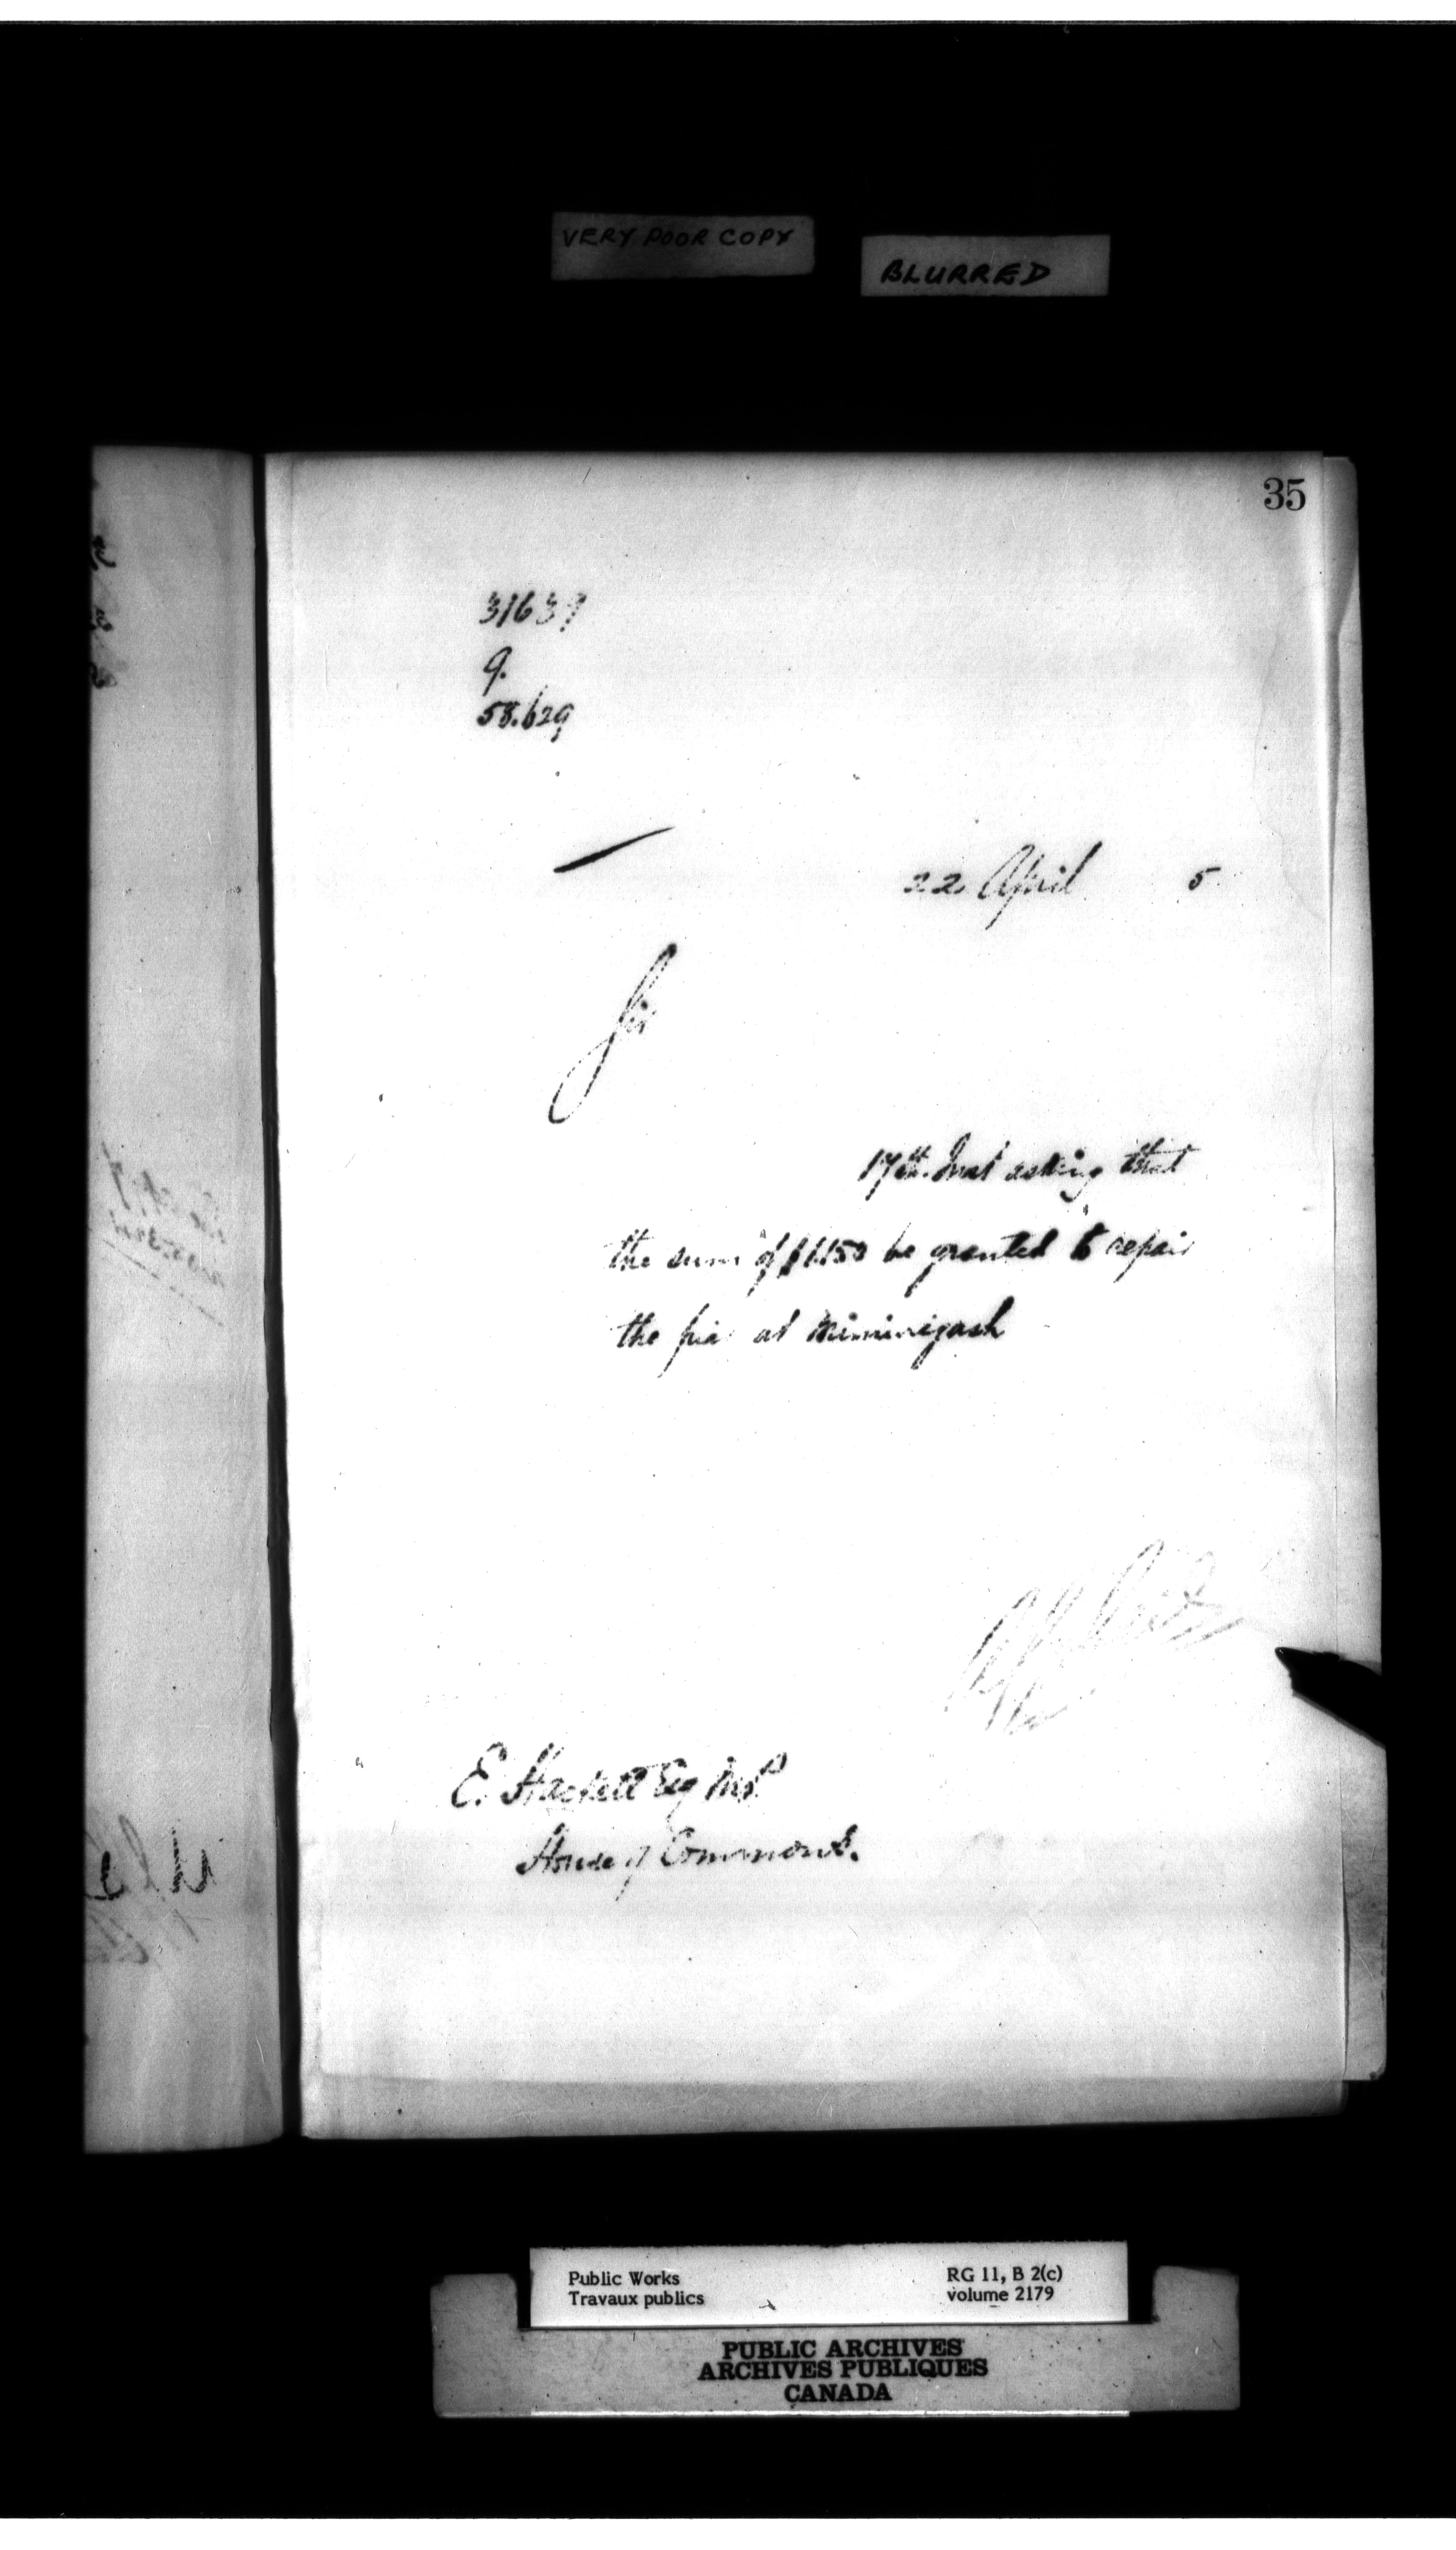 VERY POOR COPY
BLURRED
35
31639
9.
58.629
22 April 5
Sir
17th. Inst asking that
the sum of $1150 be granted to repair
the pier at Miminigash
E. Hackett Esq M.P.
House of Commons.
Public Works
Travaux publics
RG 11, B 2(c)
volume 2179
PUBLIC ARCHIVES
ARCHIVES PUBLIQUES
CANADA